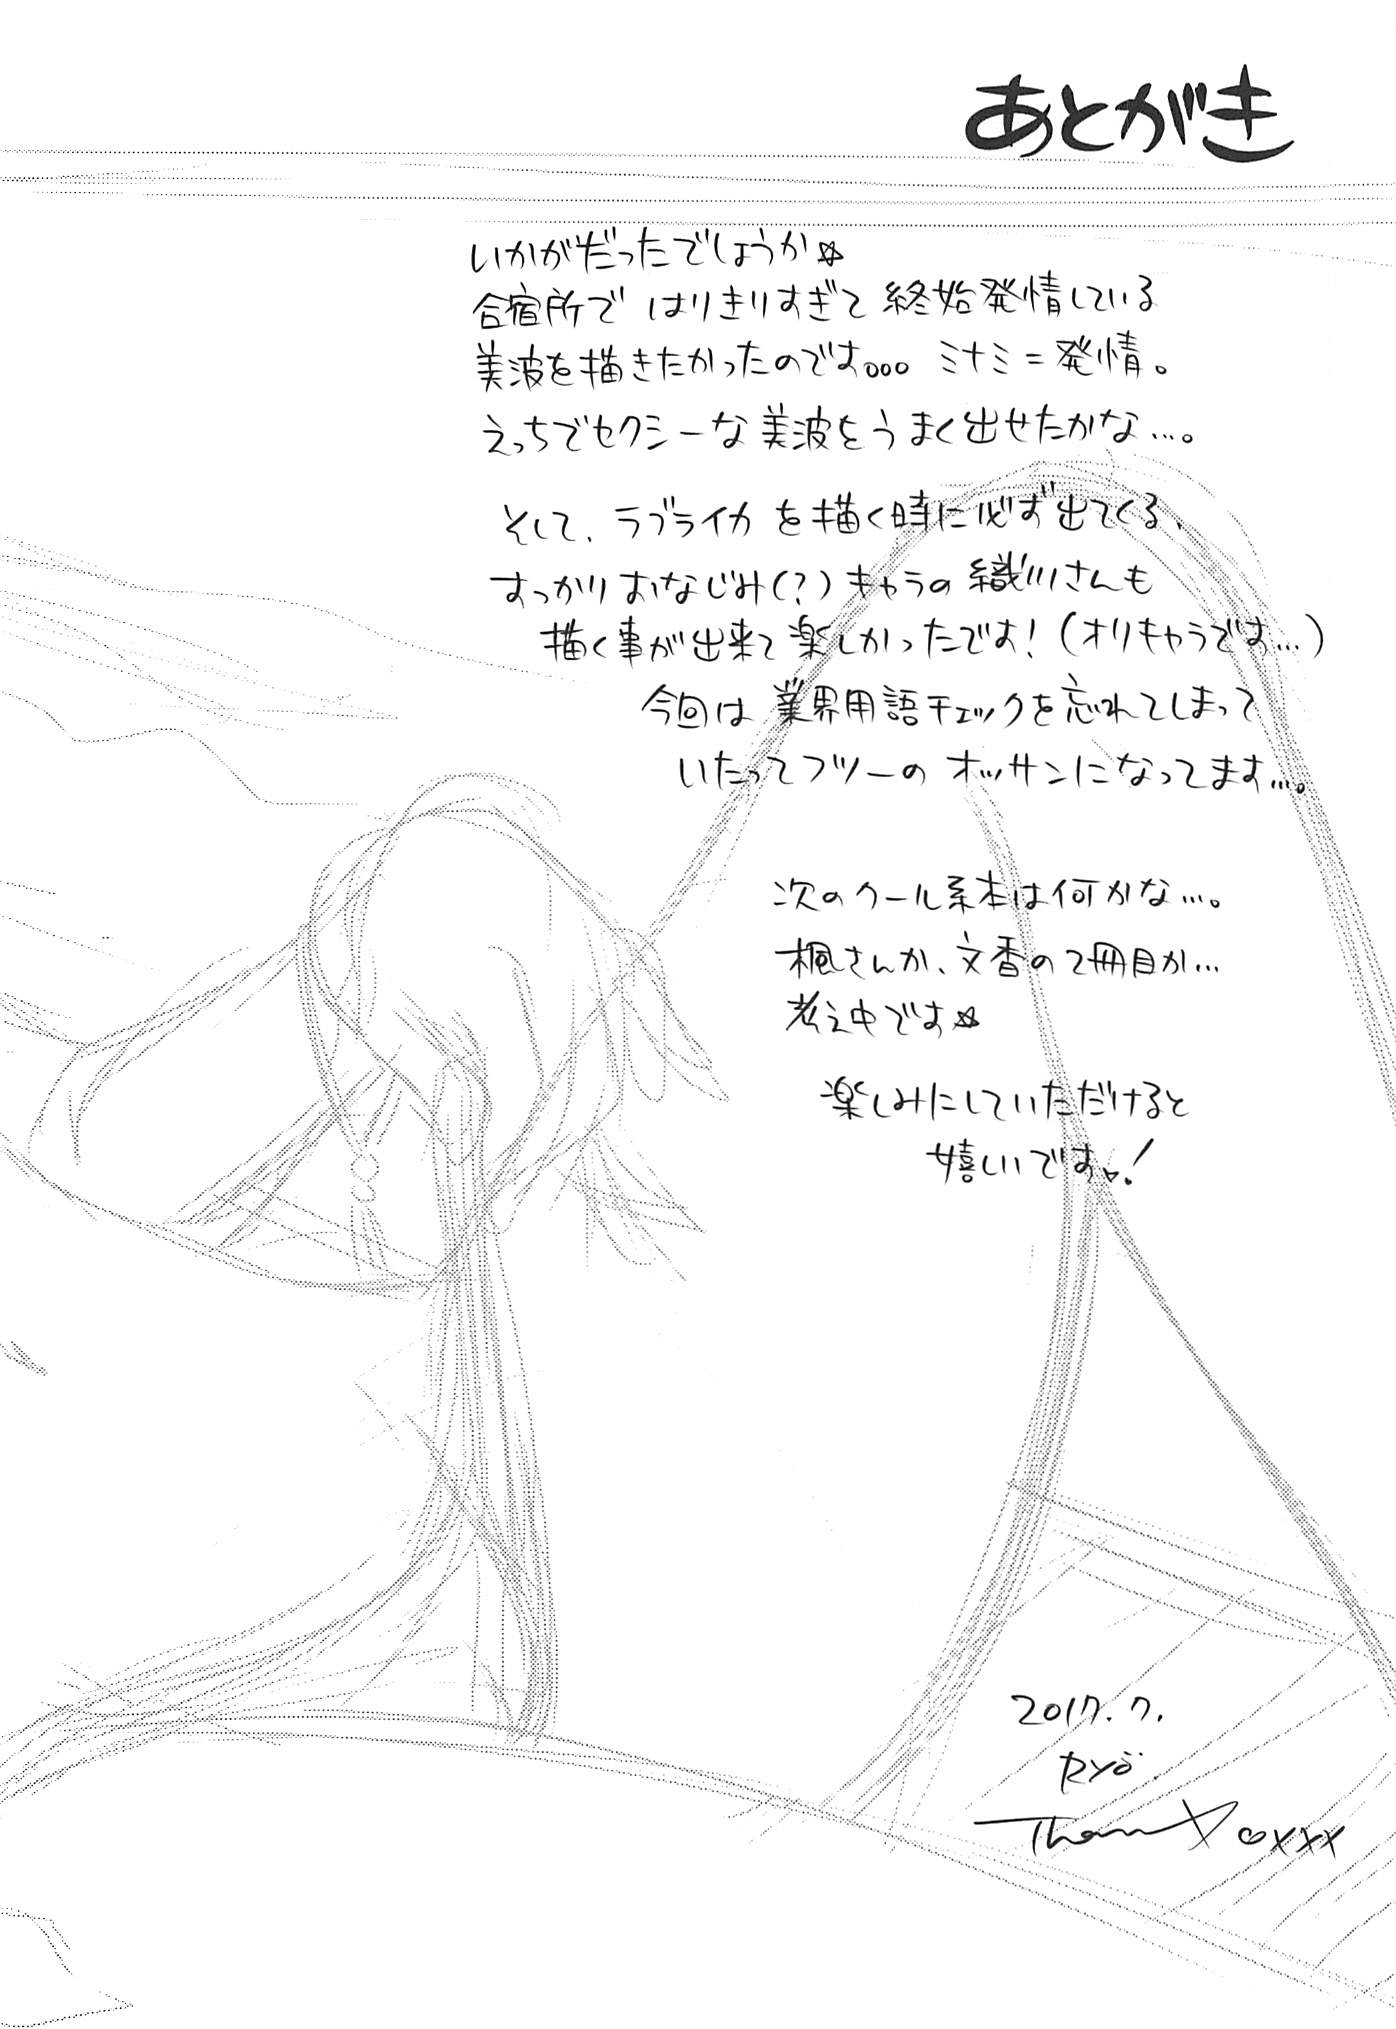 あとがき
いかがだったでしょうか☆
合宿所で はりきりすぎて 終始発情している
美波を描きたかったのです。。。 ミナミ=発情。
えっちでセクシーな美波をうまく出せたかな…。
そして、ラブライカを描く時に必ず出てくる、
すっかりおなじみ(?)キャラの織川さんも
描く事が出来て楽しかったです!(オリキャラです…)
今回は業界用語チェックを忘れてしまって
いたってフツーのオッサンになってます…。
次のクール系本は何かな…。
楓さんか、文香の2冊目か…
考え中です☆
楽しみにしていただけると
嬉しいです!
2017.7.
RYÖ
Thank ♡xxx